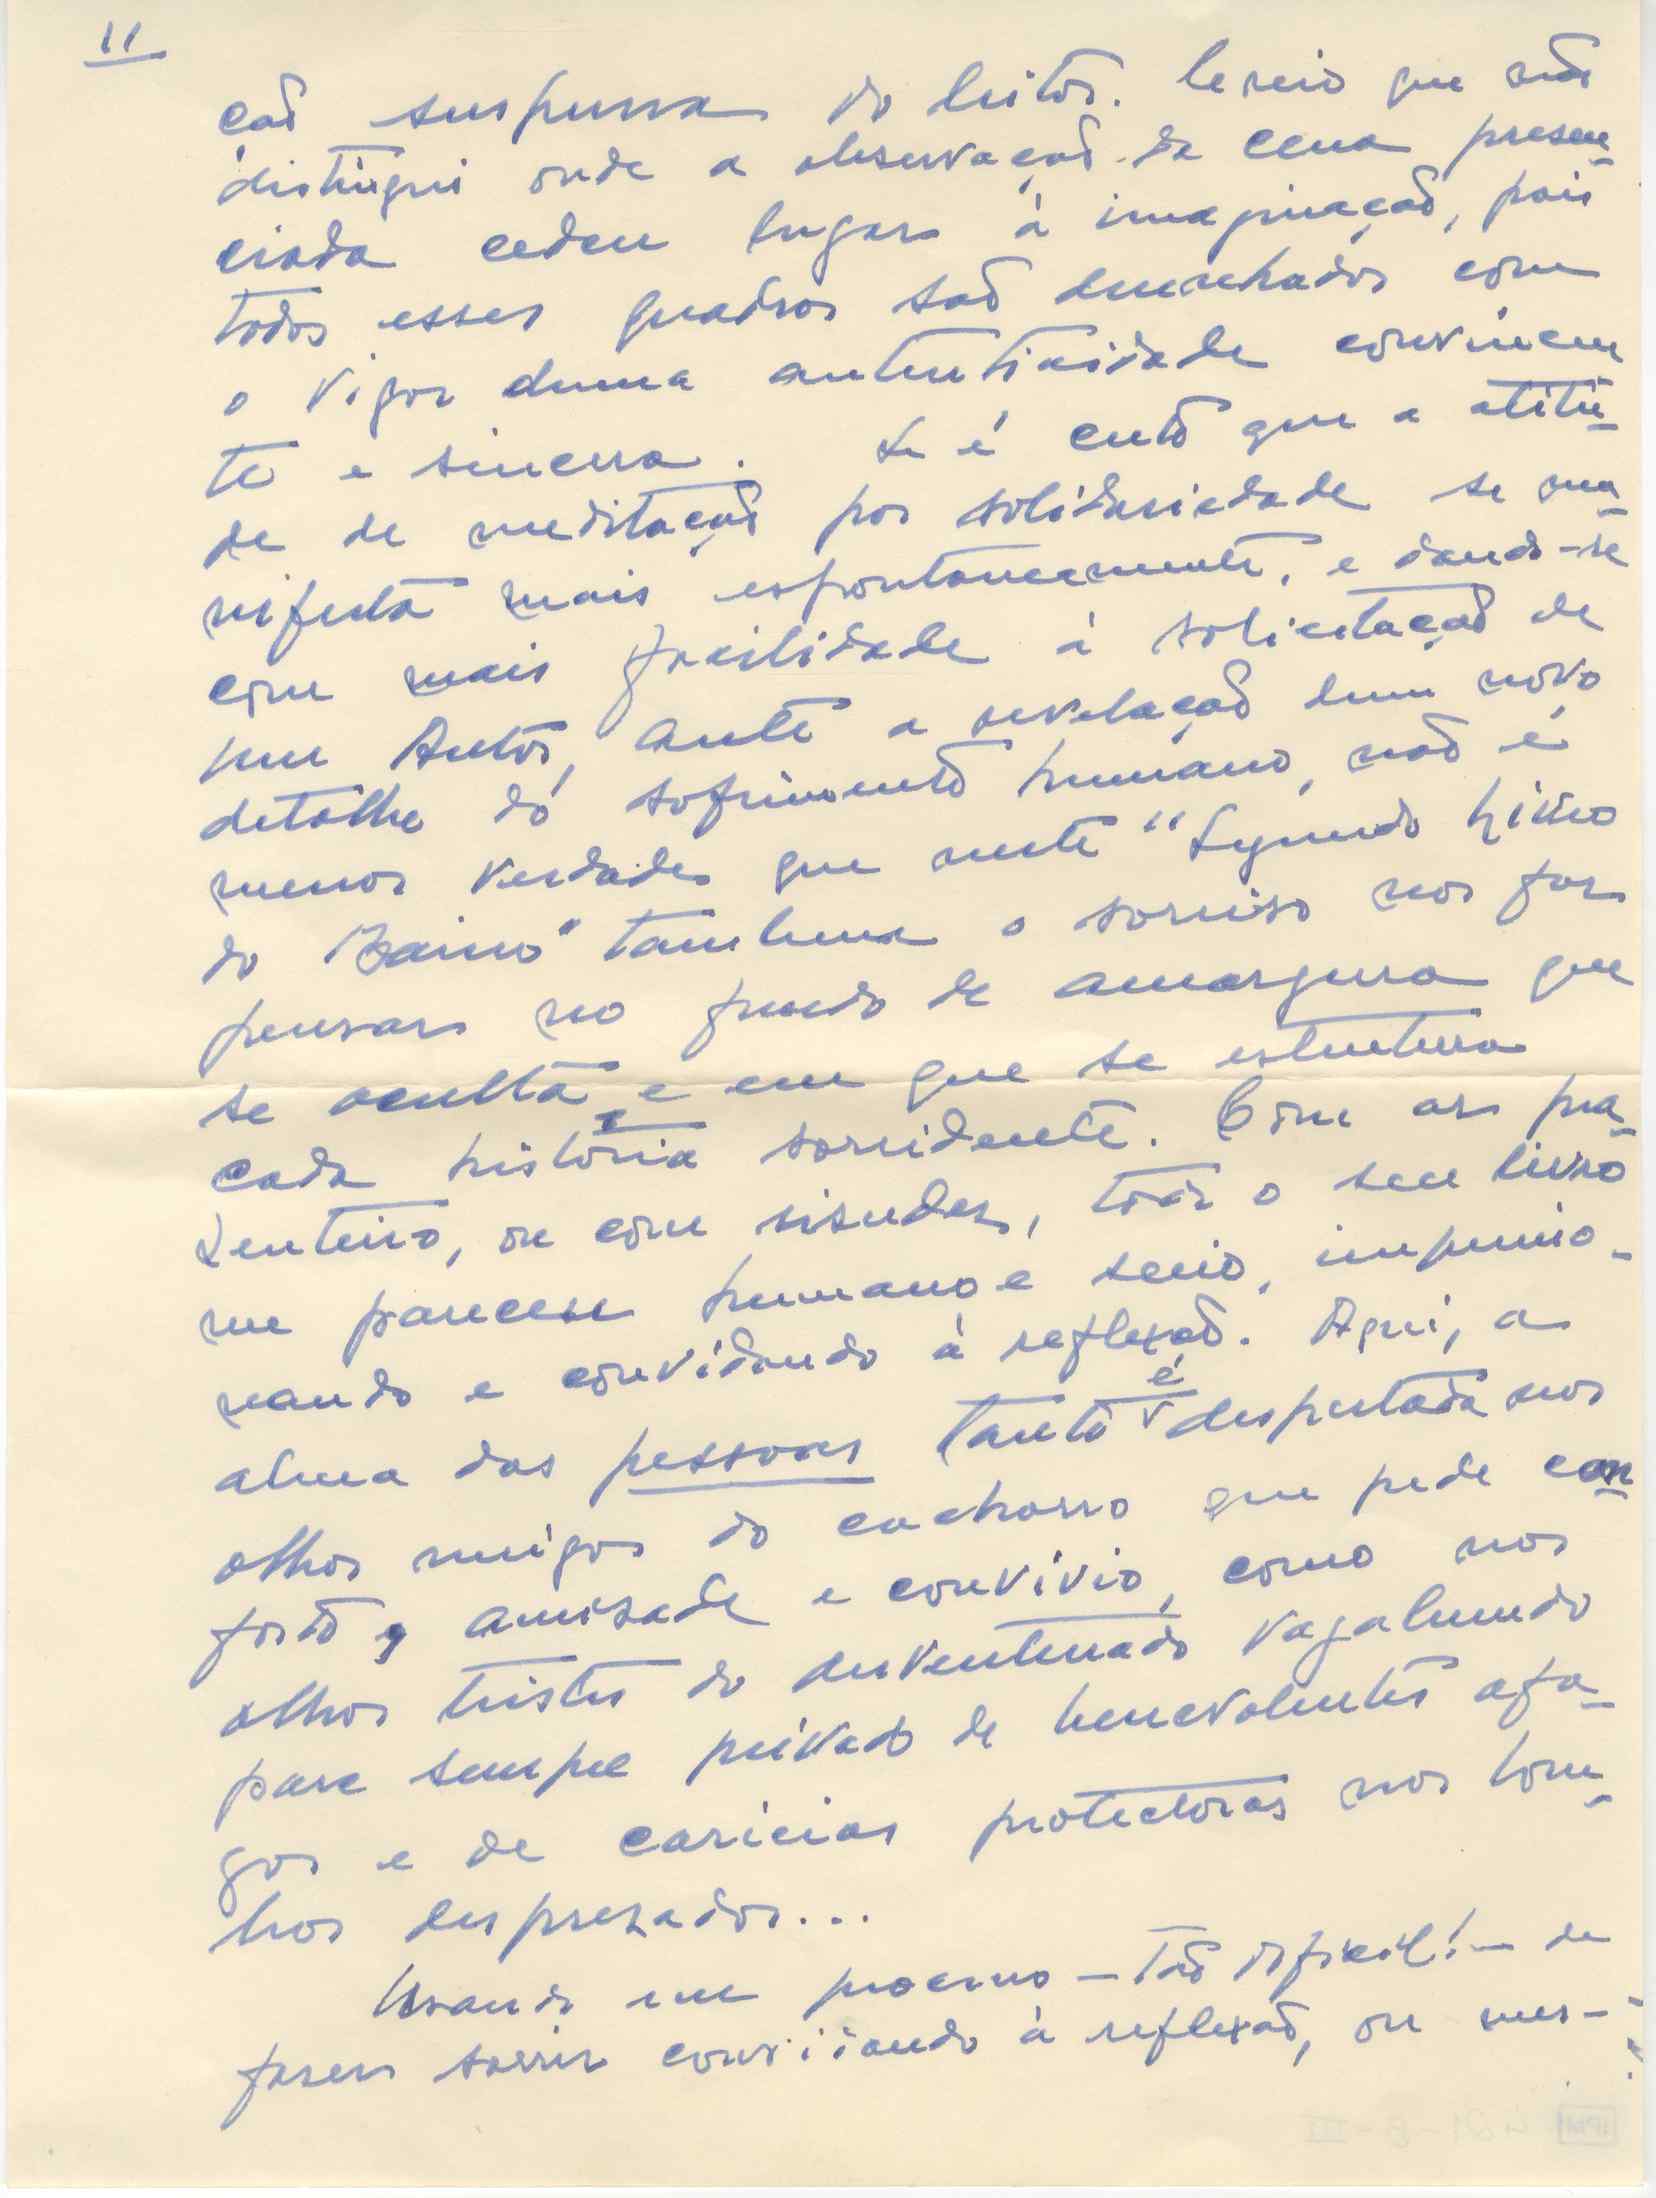 11
ção suspensa do leitor. Creio que não
distingui onde a observação da cena presen-
ciada cedeu lugar à imaginação, pois
todos esses quadros são desenhados com
o vigor duma autenticidade convincen
te e sincera. Se é certo que a atitu-
de de meditação por solidariedade se ma-
nifesta mais espontaneamente, e dando-se
com mais facilidade à solicitação de
um Autor, ante a revelação dum novo
detalhe do sofrimento humano, não é
menos verdade que neste "Segundo Livro
do Bairro" também o sorriso nos faz
pensar no fundo de amargura que
se oculta e em que se estrutura
cada história sorridente. Com ar pra-
zenteiro, ou com sisudez, todo o seu livro
me pareceu humano e sério, impressio-
nando e convidando à reflexão. Aqui, a
alma das pessoas tanto é despertada nos
olhos meigos do cachorro que pede con
forto, amizade e convívio, como nos
olhos tristes do desventurado vagabundo
para sempre privado de benevolentes afa-
gos e de carícias protectoras nos hom-
bros desprezados...
Usando um processo - tão difícil! - de
fazer sorrir convidando à reflexão, ou mes-
IPM 421-8-III